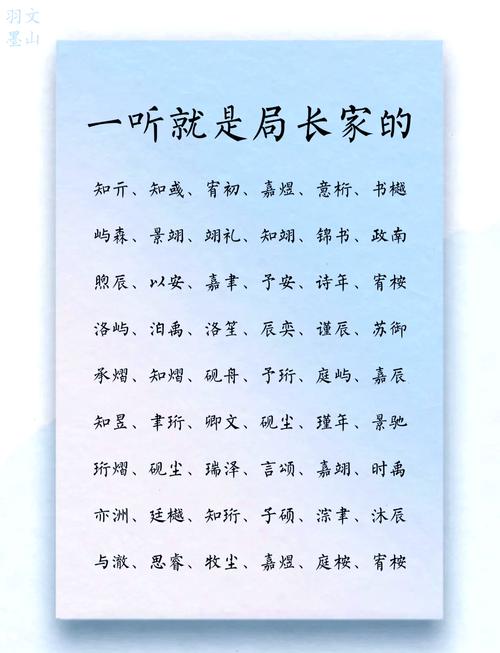 羽文
墨山
一听就是局长家的
知亓、知彧、宥初、嘉煜、意析、书樾
屿森、景翊、翊礼、知翊、锦书、政南
煦辰、以安、嘉聿、予安、诗年、宥桉
洛屿、泊禹、洛笙、辰奕、谨辰、苏御
承熠、知熠、砚舟、予珩、庭屿、嘉辰
知昱、聿珩、卿文、砚尘、瑾年、景驰
珩熠、砚尘、瑞泽、言颂、嘉翊、时禹
亦洲、廷樾、知珩、子硕、淙聿、沐辰
与澈、思睿、牧尘、嘉煜、庭桉、宥桉